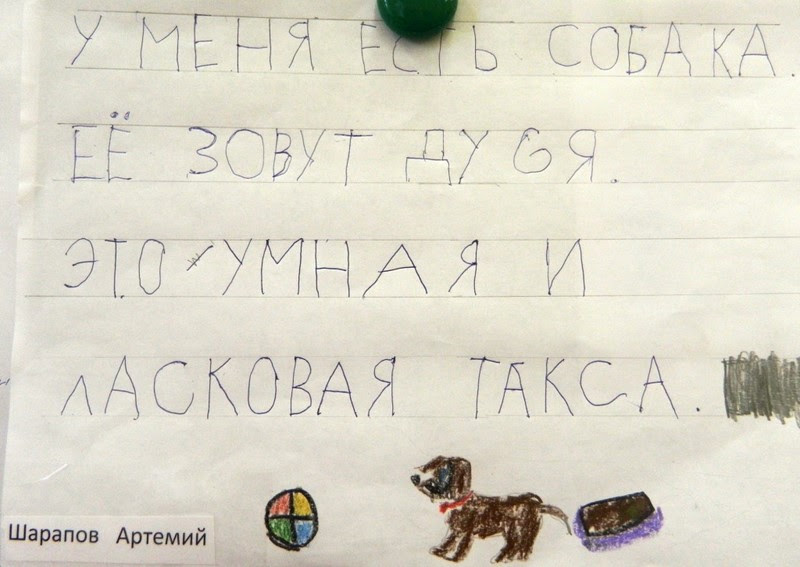 У МЕНЯ ЕСТЬ СОБАКА.
ЕЁ ЗОВУТ ДУСЯ.
ЭТО УМНАЯ И
ЛАСКОВАЯ ТАКСА.
Шарапов Артемий